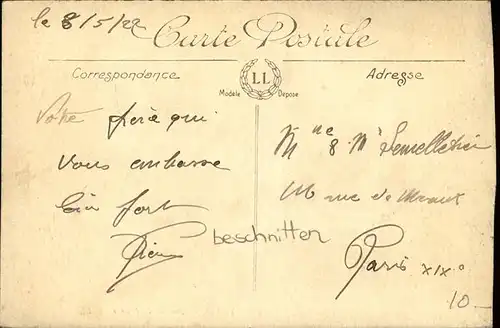 le 8/5/22
Carte Postale
Correspondance
LL
Adresse
Modèle Déposé
Votre frère qui
vous embrasse
bien fort
Pierre
beschnitten
Mme & Mr
rue de Meaux
Paris XIXe
10.-